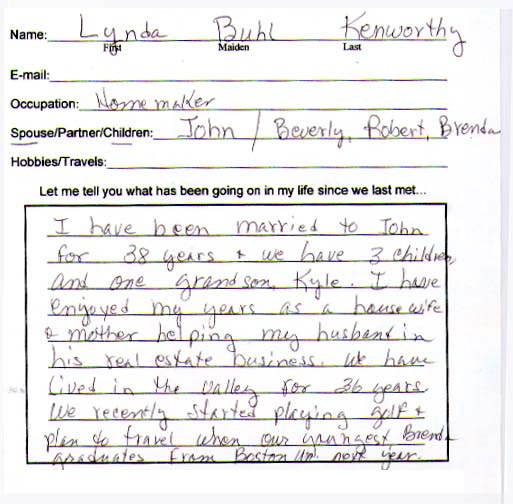 Name: Lynda Buhl Kenworthy
First Maiden Last
E-mail:
Occupation: Homemaker
Spouse/Partner/Children: John / Beverly, Robert, Brenda
Hobbies/Travels:
Let me tell you what has been going on in my life since we last met...
I have been married to John
for 38 years & we have 3 children,
and one grandson, Kyle. I have
enjoyed my years as a housewife
& mother helping my husband in
his real estate business. We have
lived in the Valley for 36 years.
We recently started playing golf &
plan to travel when our youngest, Brenda
graduates from Boston Un. next year.